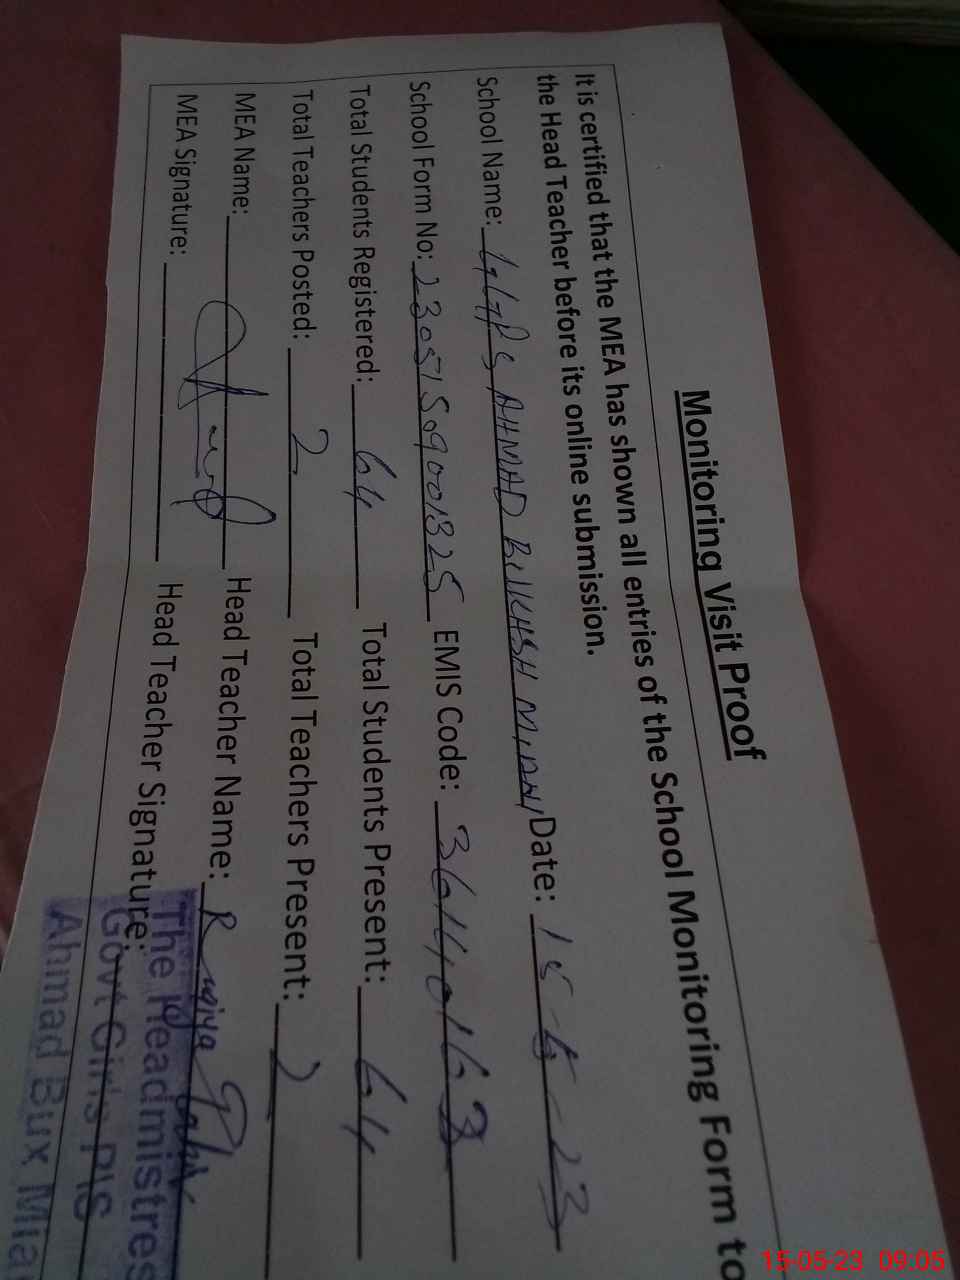 Monitoring Visit Proof
It is certified that the MEA has shown all entries of the School Monitoring Form to
the Head Teacher before its online submission.
School Name: GGPS AHMAD BUKHSH MIANI Date: 15-5-23
School Form No: 23051509001325 EMIS Code: 36140163
Total Students Registered: 64 Total Students Present: 64
Total Teachers Posted: 2 Total Teachers Present: 2
MEA Name: Head Teacher Name: Ruqiya
MEA Signature: Head Teacher Signature:
The Headmistres
Govt Girls P/S
Ahmad Bux Mia
15-05-23 09:05